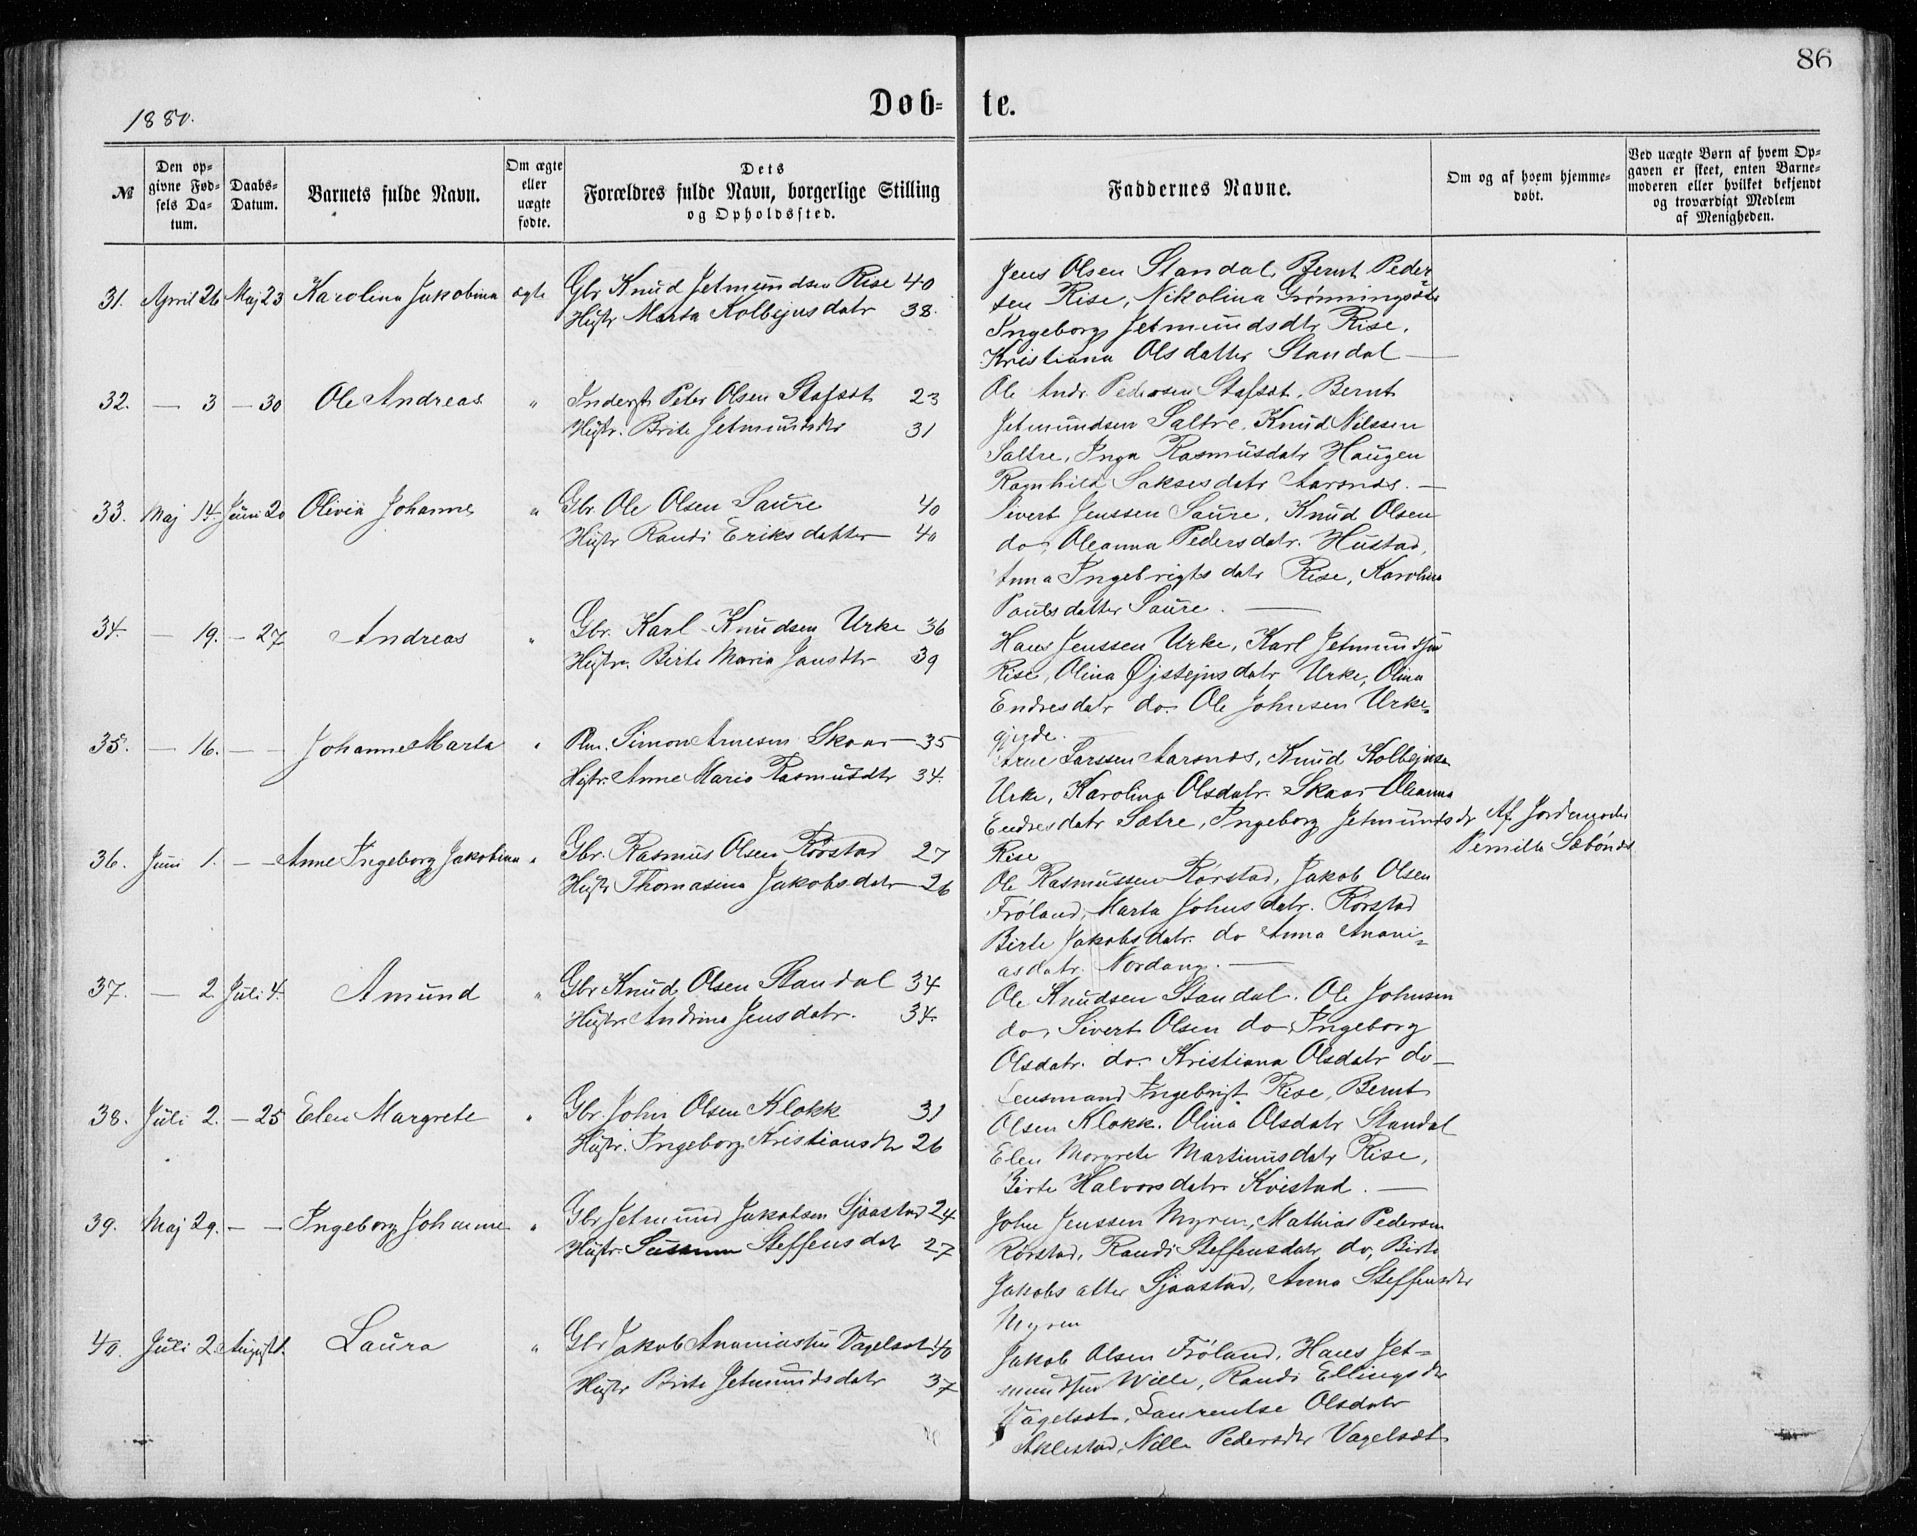 86
1880.
Døb- te.
№
Den op-
givne Fød-
sels Da-
tum.
Daabs-
Datum.
Barnets fulde Navn.
Om ægte
eller
uægte
fødte.
Dets
Forældres fulde Navn, borgerlige Stilling
og Opholdssted.
Faddernes Navne.
Om og af hvem hjemme-
døbt.
Ved uægte Børn af hvem Op-
gaven er skeet, enten Barne-
moderen eller hvilket bekjendt
og troværdigt Medlem
af Menigheden.
31. April 26 Maj 23 Karolina Jakobina ægte Gbr Knud Jetmundsen Rise 40
Hustr Marta Kolbejnsdatr 38.
Jens Olsen Standal, Bernt Peder-
sen Rise, Nikolina Grønningsæter
Ingeborg Jetmundsdtr Rise,
Kristiana Olsdatter Standal —
32. — 3 — 30 Ole Andreas " Inderst Peter Olsen Stafsæt 23
Hustr. Brite Jetmundsdtr 31
Ole Andr. Pedersen Stafsæt, Bernt
Jetmundsen Sætre, Knud Nilssen
Sætre, Inga Rasmusdatr Haugen
Ragnhild Saksesdatr Aarsnes. —
33. Maj 14. Juni 20 Olivia Johanne " Gbr. Ole Olsen Saure 40
Hustr Randi Eriksdatter 40
Sivert Jenssen Saure, Knud Olsen
do, Oleanna Pedersdatr. Hustad,
Anna Ingebrigtsdatr Rise, Karolina
Paulsdatter Saure. —
34. — 19. — 27 Andreas " Gbr. Karl Knudsen Urke 36
Hustr. Birte Maria Jansdtr 39
Hans Jenssen Urke, Karl Jetmundsen
Rise, Olina Øjstejnsdatr Urke, Olina
Endresdatr do. Ole Johnsen Urke-
gjede.
35. — 16. — — Johanne Marta " Plm. Simon Arnesen Skaar 35
Hustr. Anne Maria Rasmusdtr 34.
Arne Larssen Aarsnes, Knud Kolbejnsen
Urke, Karolina Olsdatr. Skaar Oleanna
Endresdatr Sætre, Ingeborg Jetmundsdr
Rise
36. Juni 1. — — Anne Ingeborg Jakobina " Gbr. Rasmus Olsen Rørstad 27
Hustr Thomasina Jakobsdatr 26
Ole Rasmussen Rørstad, Jakob Olsen
Frøland, Marta Johnsdatr. Rørstad
Birte Jakobsdatr. do Anna Anani-
asdatr. Nordang. —
Af Jordemoder
Pernille Sæbønes
37. — 2 Juli 4. Amund " Gbr Knud Olsen Standal 34
Hustr. Andrina Jensdatr. 34.
Ole Knudsen Standal. Ole Johnsen
do, Sivert Olsen do Ingeborg
Olsdatr. do. Kristiana Olsdatr do —
38. Juli 2. — 25 Elen Margrete " Gbr. John Olsen Klokk 31
Hustr. Ingeborg Kristiansdtr 26
Lensmand Ingebrigt Rise, Bernt
Olsen Klokk. Olina Olsdatr Standal
Elen Margrete Martinusdatr Rise,
Birte Halvorsdatr Kvistad. —
39. Maj 29. — — Ingeborg Johanne " Gbr Jetmund Jakobsen Sjaastad 24
Hustr. Susanna Steffensdatr 27
John Jenssen Myren, Mathias Pedersen
Rørstad, Randi Steffensdatr do, Birte
Jakobsatter Sjaastad, Anna Steffensdtr
Myren
40. Juli 2. August 1. Laura " Gbr Jakob Ananiassen Vagelsæt 40
Hustr Brite Jetmundsdatr 37
Jakob Olsen Frøland, Hans Jet-
mundsen Wille, Randi Ellingsdtr
Vagelsæt, Laurentse Olsdatr
Aklestad, Nille Pedersdtr Vagelsæt